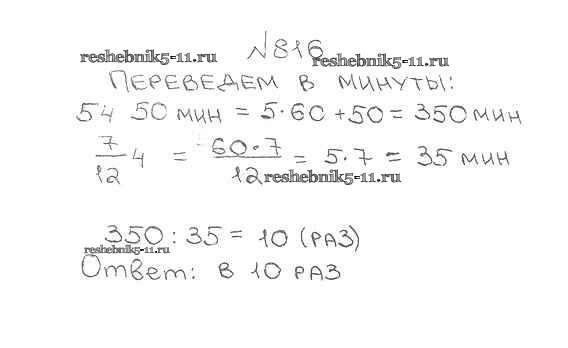 №816
reshebnik5-11.ru reshebnik5-11.ru
ПЕРЕВЕДЕМ В МИНУТЫ:
5ч 50 мин = 5·60 + 50 = 350 мин
7/12 ч = 60·7/12 = 5·7 = 35 мин
reshebnik5-11.ru
350 : 35 = 10 (РАЗ)
reshebnik5-11.ru
Ответ: в 10 РАЗ